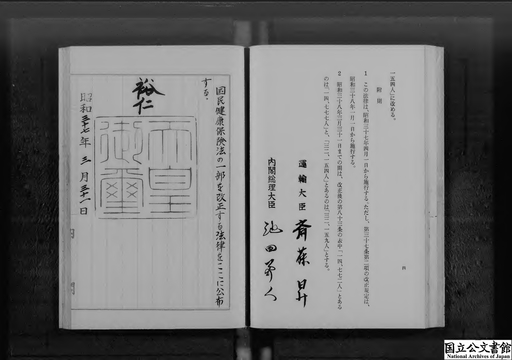 一五四人」に改める。
附則
1 この法律は、昭和三十七年四月一日から施行する。ただし、第三十七条第二項の改正規定は、
昭和三十八年一月一日から施行する。
2 昭和三十八年三月三十一日までの間は、改正後の第八十三条の表中「一四、七七二人」とある
のは「一四、七七七人」と、「三二、一五四人」とあるのは「三二、一五九人」とする。
運輸大臣 斎藤昇
内閣総理大臣 池田勇人
国民健康保険法の一部を改正する法律をここに公布
する。
裕仁
天皇御璽
昭和三十七年三月三十一日
国立公文書館
National Archives of Japan